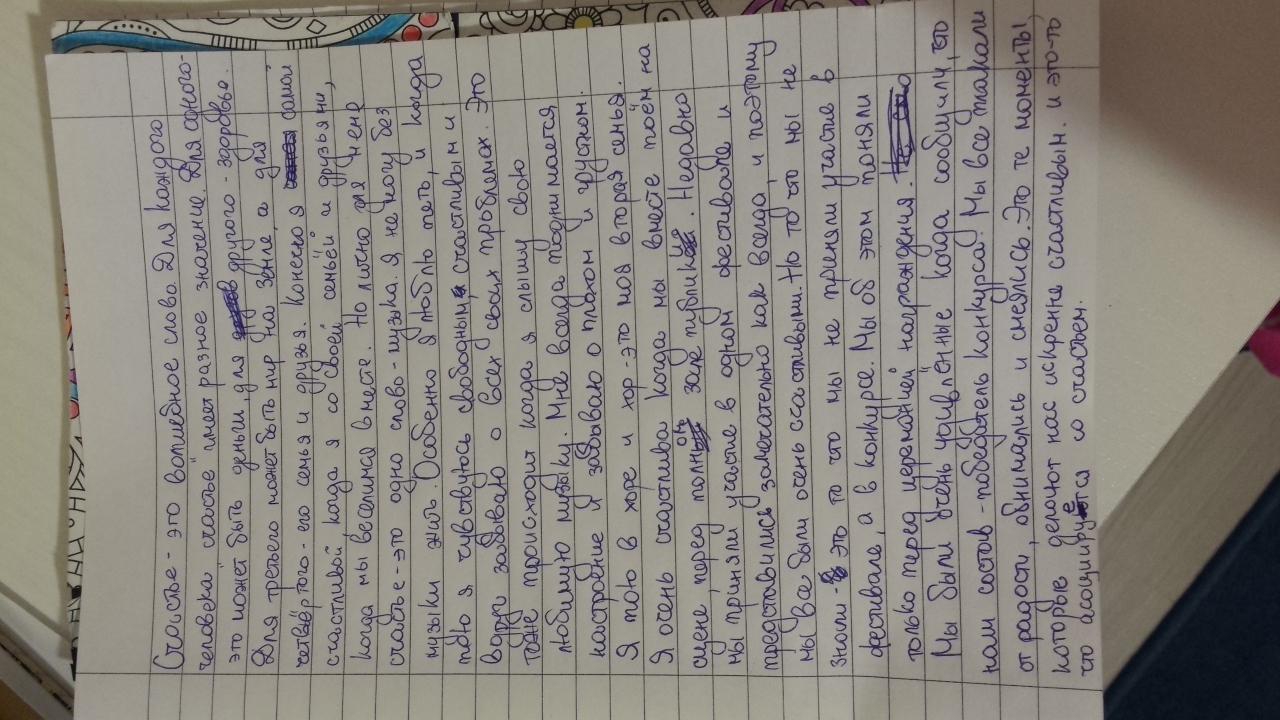 Счастье - это волшебное слово. Для каждого
человека "счастье" имеет разное значение. Для одного-
это может быть деньги, для другого - здоровье.
Для третьего может быть мир на Земле, а для
четвёртого - его семья и друзья. Конечно я самой
счастливой, когда я со своей семьёй и друзьями,
когда мы веселимся вместе. Но лично для меня
счастье - это одно слово - музыка. Я не могу без
музыки жить. Особенно я люблю петь, и когда
пою я чувствуюсь свободным, счастливым и
вдруг забываю о всех своих проблемах. Это
тоже происходит когда я слышу свою
любимую музыку. Мне всегда поднимается
настроение и забываю о плохом и грустном.
Я пою в хоре и хор - это моя вторая семья.
Я очень счастлива когда мы вместе поём на
сцене, перед полном зале публики. Недавно
мы приняли участие в одном фестивале и
представились замечательно как всегда, и поэтому
мы все были очень счастливыми. Но то что мы не
знали - это то что мы не приняли участие в
фестивале, а в конкурсе. Мы об этом поняли
только перед церемонией награждения.
Мы были очень удивлённые когда сообщили, что
наш состав - победатель конкурса. Мы все плакали
от радости, обнимались и смеялись. Это те моменты,
которые делают нас искренне счастливым. и это-то
что асоциируется со счастьем.